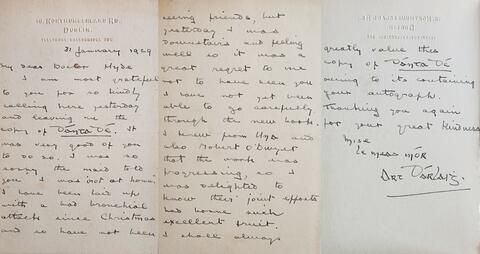 10, NORTHUMBERLAND RD.
DUBLIN.
31 January 1929
My dear Doctor Hyde
I am most grateful
to you for so kindly
calling here yesterday
and leaving me the
copy of Dánta Dé. It
was very good of you
to do so. I was so
sorry the maid told
you I was not at home.
I have been laid up
with a bad bronchial
attack since Christmas
and so have not been
seeing friends, but
yesterday I was
downstairs and feeling
well so it was a
great regret to me
not to have seen you
I have not yet been
able to go carefully
through the new book.
I knew from Una and
also Robert O'Dwyer
that the work was
progressing, so I
was delighted to
know their joint efforts
had borne such
excellent fruit.
I shall always
greatly value this
copy of Dánta Dé
owing to its containing
your autograph.
Thanking you again
for your great kindness
Mise
le meas mór